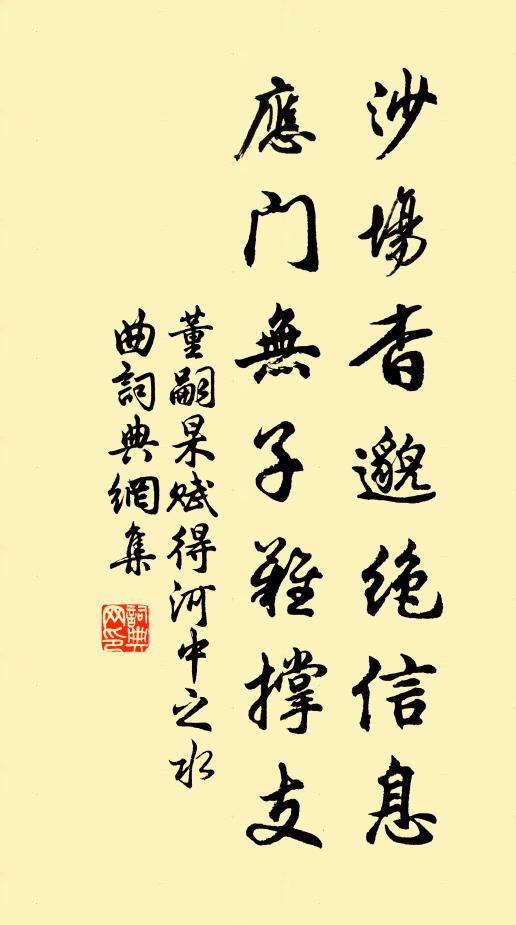 沙場杳邈絶信息
應門無子難撐支
董嗣杲賦得河中之水
曲詞典網集
詞典網印